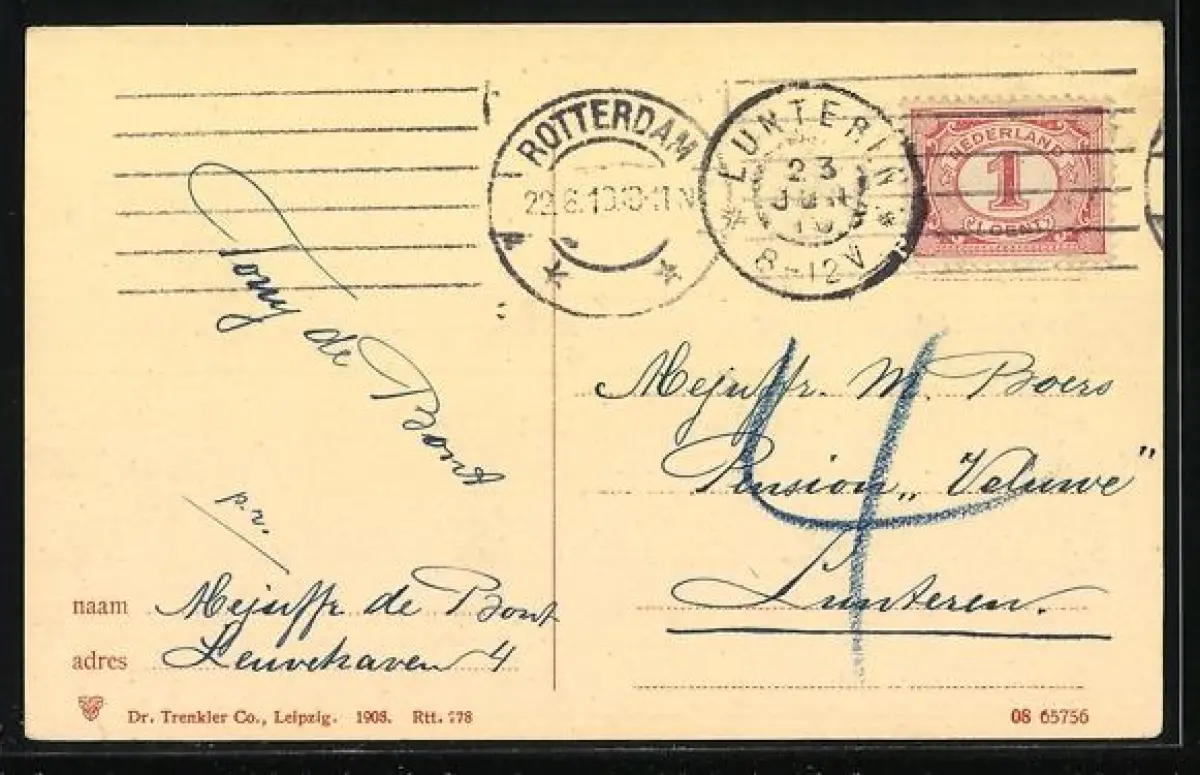 ROTTERDAM
22.6.10.10-11N
LUNTEREN
23
JUN
10
8-12 V
NEDERLAND
1
(1 CENT)
Tony de Bont
p.r.
Mejuffr. M. Boers
Pension „Veluwe"
Lunteren.
4
naam Mejuffr de Bont
adres Leuvehaven 4
Dr. Trenkler Co., Leipzig. 1908. Rtt. 778
08 65756